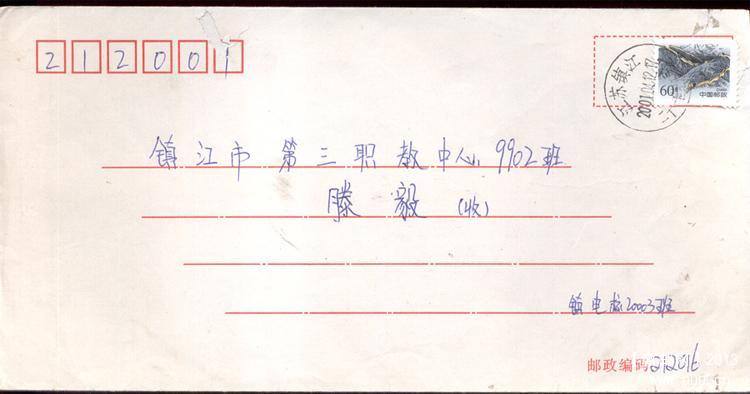 212001
江苏镇江
2001.04.12.17
60分
中国邮政
镇江市第三职教中心9902班
滕毅(收)
镇电校20003班
邮政编码212016